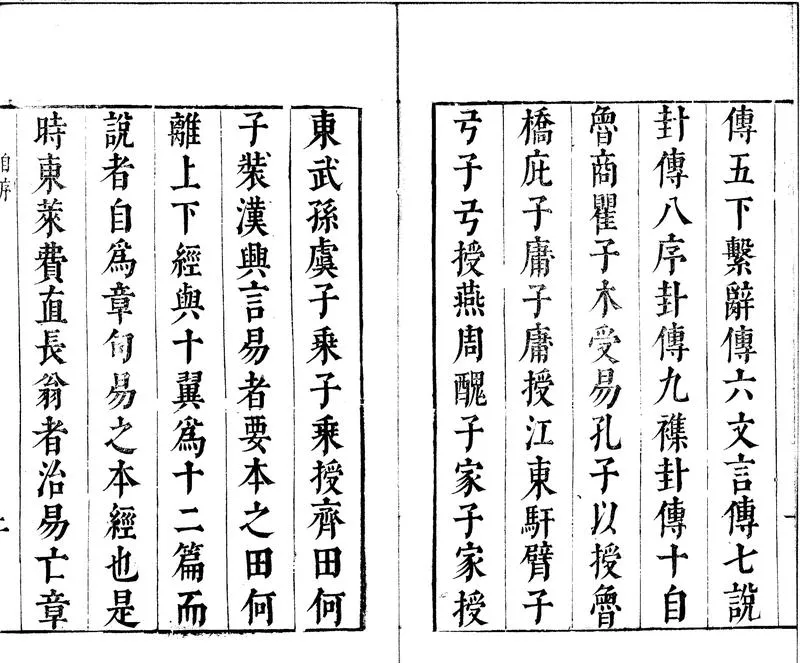 傳五下繫辭傳六文言傳七說
卦傳八序卦傳九襍卦傳十自
魯商瞿子木受易孔子以授魯
橋庇子庸子庸授江東馯臂子
弓子弓授燕周醜子家子家授
東武孫虞子乗子乗授齊田何
子裝漢興言易者要本之田何
離上下經與十翼爲十二篇而
說者自爲章句易之本經也是
時東萊費直長翁者治易亡章
自序
二